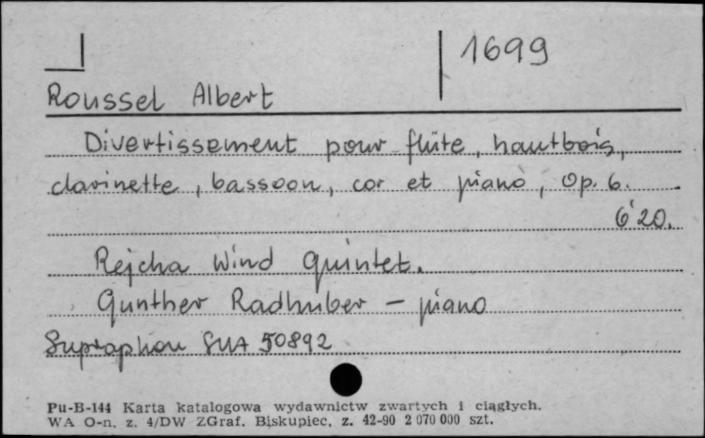 1699
Roussel Albert
Divertissement pour flûte, hautbois,
clarinette, bassoon, cor et piano, Op. 6.
6'20.
Rejcha Wind Quintet.
Gunther Radhuber – piano
Supraphon SUA 50892
Pu-B-144 Karta katalogowa wydawnictw zwartych i ciągłych.
WA O-n. z. 4/DW ZGraf. Biskupiec, z. 42-90 2 070 000 szt.